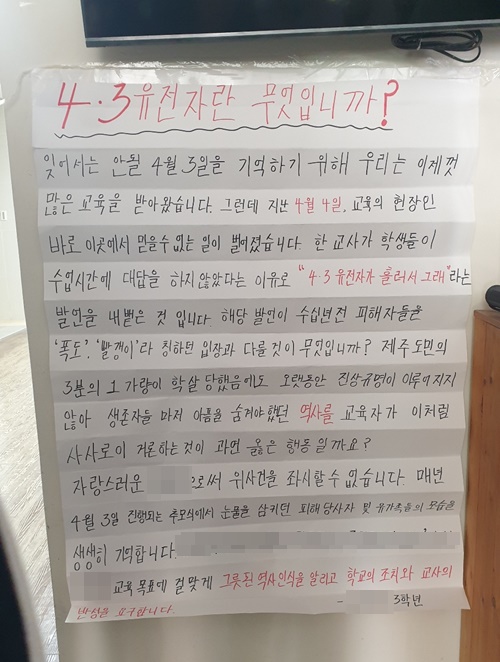 4·3유전자란 무엇입니까?
잊어서는 안될 4월 3일을 기억하기 위해 우리는 이제껏
많은 교육을 받아왔습니다. 그런데 지난 4월 4일, 교육의 현장인
바로 이곳에서 믿을 수 없는 일이 벌어졌습니다. 한 교사가 학생들이
수업시간에 대답을 하지 않았다는 이유로 "4·3 유전자가 흘러서 그래"라는
발언을 내뱉은 것 입니다. 해당 발언이 수십년전 피해자들을
'폭도', '빨갱이'라 칭하던 입장과 다를것이 무엇입니까? 제주도민의
3분의 1 가량이 학살 당했음에도 오랫동안 진상규명이 이루어지지
않아 생존자들 마저 아픔을 숨겨야했던 역사를 교육자가 이처럼
사사로이 거론하는것이 과연 옳은 행동 일까요?
자랑스러운 으로써 위사건을 좌시할 수 없습니다. 매년
4월 3일 진행되는 추모식에서 눈물을 삼키던 피해당사자 및 유가족들의 모습을
생생히 기억합니다.
교육 목표에 걸맞게 그릇된 역사인식을 알리고 학교의 조치와 교사의
반성을 요구합니다. - 3학년